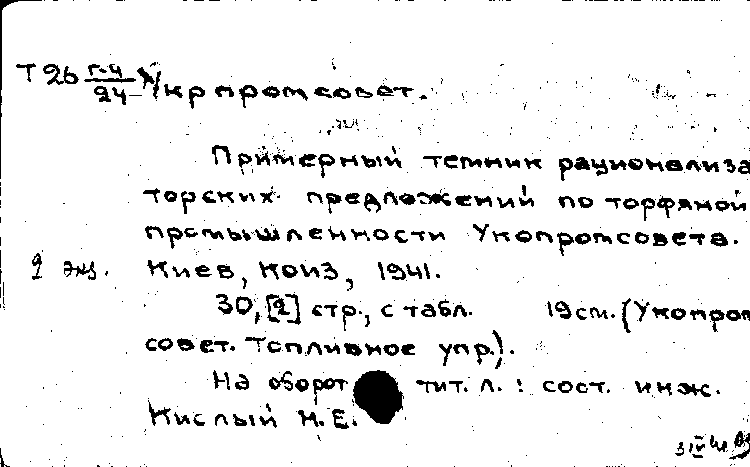 Т 26 Г-4/24 Укрпромсовет.
Примерный темник рационализа
торских предложений по торфяной
промышленности Укопромсовета.
2 экз. Киев, КОИЗ, 1941.
30, [2] стр., с табл. 19 см. (Укопром
совет. Топливное упр.).
На оборот тит. л.: сост. инж.
Кислый М. Е.